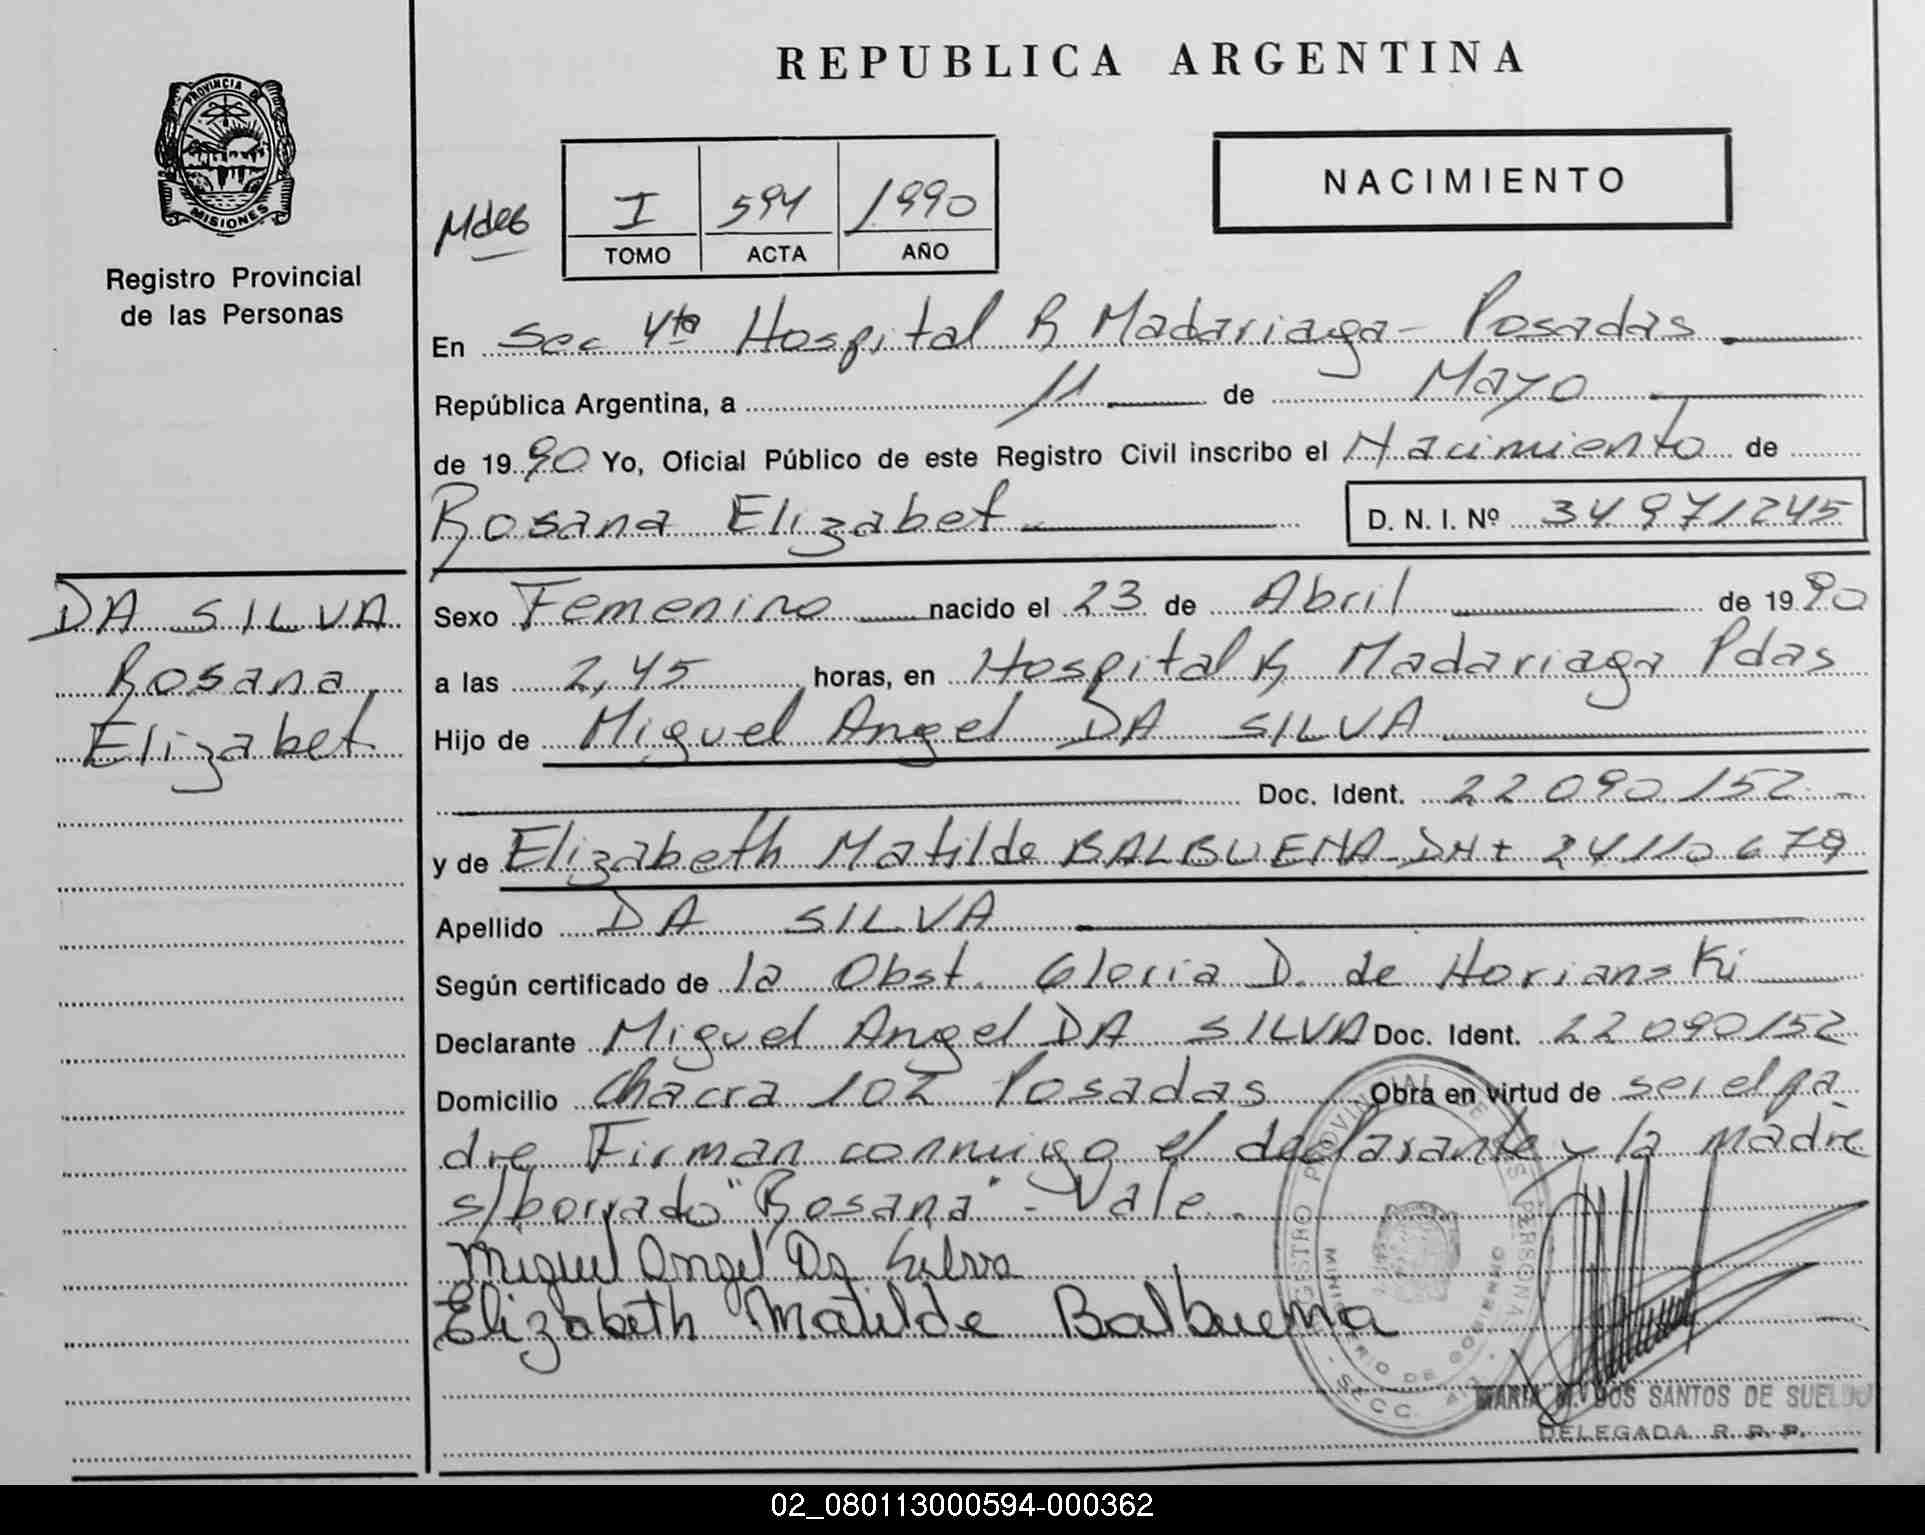 REPUBLICA ARGENTINA
PROVINCIA DE
MISIONES
Registro Provincial
de las Personas
NACIMIENTO
Mdes
I 594 1990
TOMO ACTA AÑO
En Sec 4ta Hospital R Madariaga - Posadas
República Argentina, a 11 de Mayo
de 1990 Yo, Oficial Público de este Registro Civil inscribo el Nacimiento de
Rosana Elizabet D. N. I. Nº 34971245
DA SILVA
Rosana
Elizabet
Sexo Femenino nacido el 23 de Abril de 1990
a las 2,45 horas, en Hospital R Madariaga Pdas
Hijo de Miguel Angel DA SILVA
Doc. Ident. 22 090 152
y de Elizabeth Matilde BALBUENA - DNI 24110679
Apellido DA SILVA
Según certificado de la Obst. Gloria D. de Horianski
Declarante Miguel Angel DA SILVA Doc. Ident. 22 090152
Domicilio Chacra 102 Posadas Obra en virtud de ser el pa
dre Firman conmigo el declarante y la madre
s/borrado "Rosana" - Vale.
Miguel Angel Da Silva
Elizabeth Matilde Balbuena
REGISTRO PROVINCIAL DE LAS PERSONAS
MINISTERIO DE GOBIERNO
SECC.
MARIA M. DOS SANTOS DE SUELDO
DELEGADA R. R. P.
02_080113000594-000362